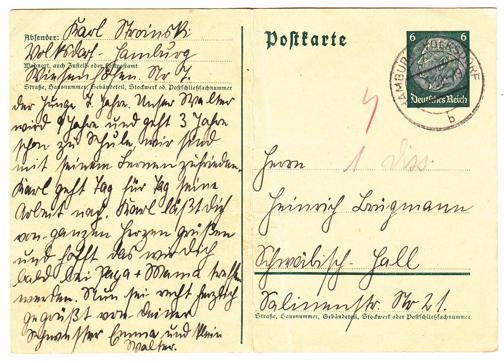 Absender: Karl Stroinski
Volksdorf-Hamburg
Wohnort, auch Zustell- oder Leitpostamt
Wiesenhöfen Nr 7.
Straße, Hausnummer, Gebäudeteil, Stockwerk od. Postschließfachnummer
der Junge 7 Jahre. Unser Walter
wird 9 Jahre und geht 3 Jahre
schon zu Schule, wir sind
mit seinem Lernen zufrieden.
Karl geht Tag für Tag seine
Arbeit nach. Karl läßt Dich
von ganzen Herzen grüßen
und hofft das wir Dich
bald bei Papa + Mama
werden. Nun sei recht herzlich
gegrüßt von Deiner
Schwester Emma und klein
Walter.
Postkarte
6 6
Deutsches Reich
HAMBURG-VOLKSDORF
b
Herrn
Heinrich Brügmann
Schwäbisch-Hall
Salinenstr. Nr 21.
Straße, Hausnummer, Gebäudeteil, Stockwerk oder Postschließfachnummer